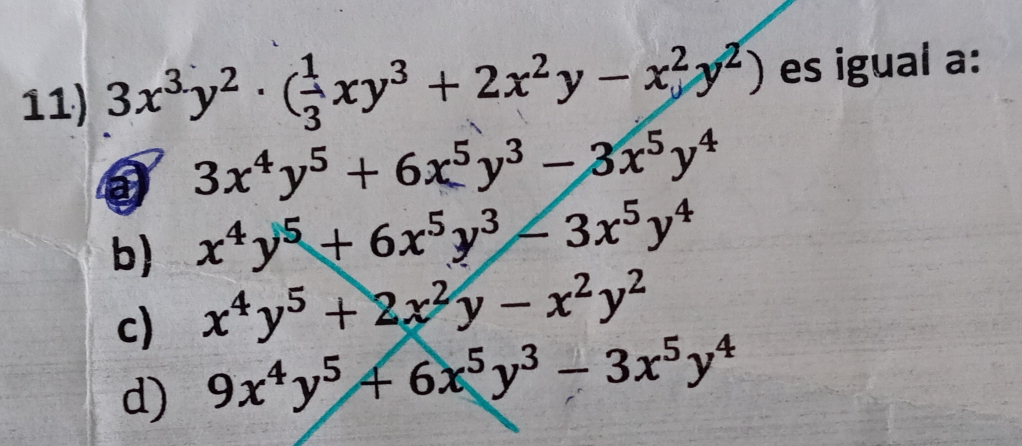 11) 3x³y² · (1/3 xy³ + 2x²y − x²y²) es igual a:
a) 3x⁴y⁵ + 6x⁵y³ − 3x⁵y⁴
b) x⁴y⁵ + 6x⁵y³ − 3x⁵y⁴
c) x⁴y⁵ + 2x²y − x²y²
d) 9x⁴y⁵ + 6x⁵y³ − 3x⁵y⁴